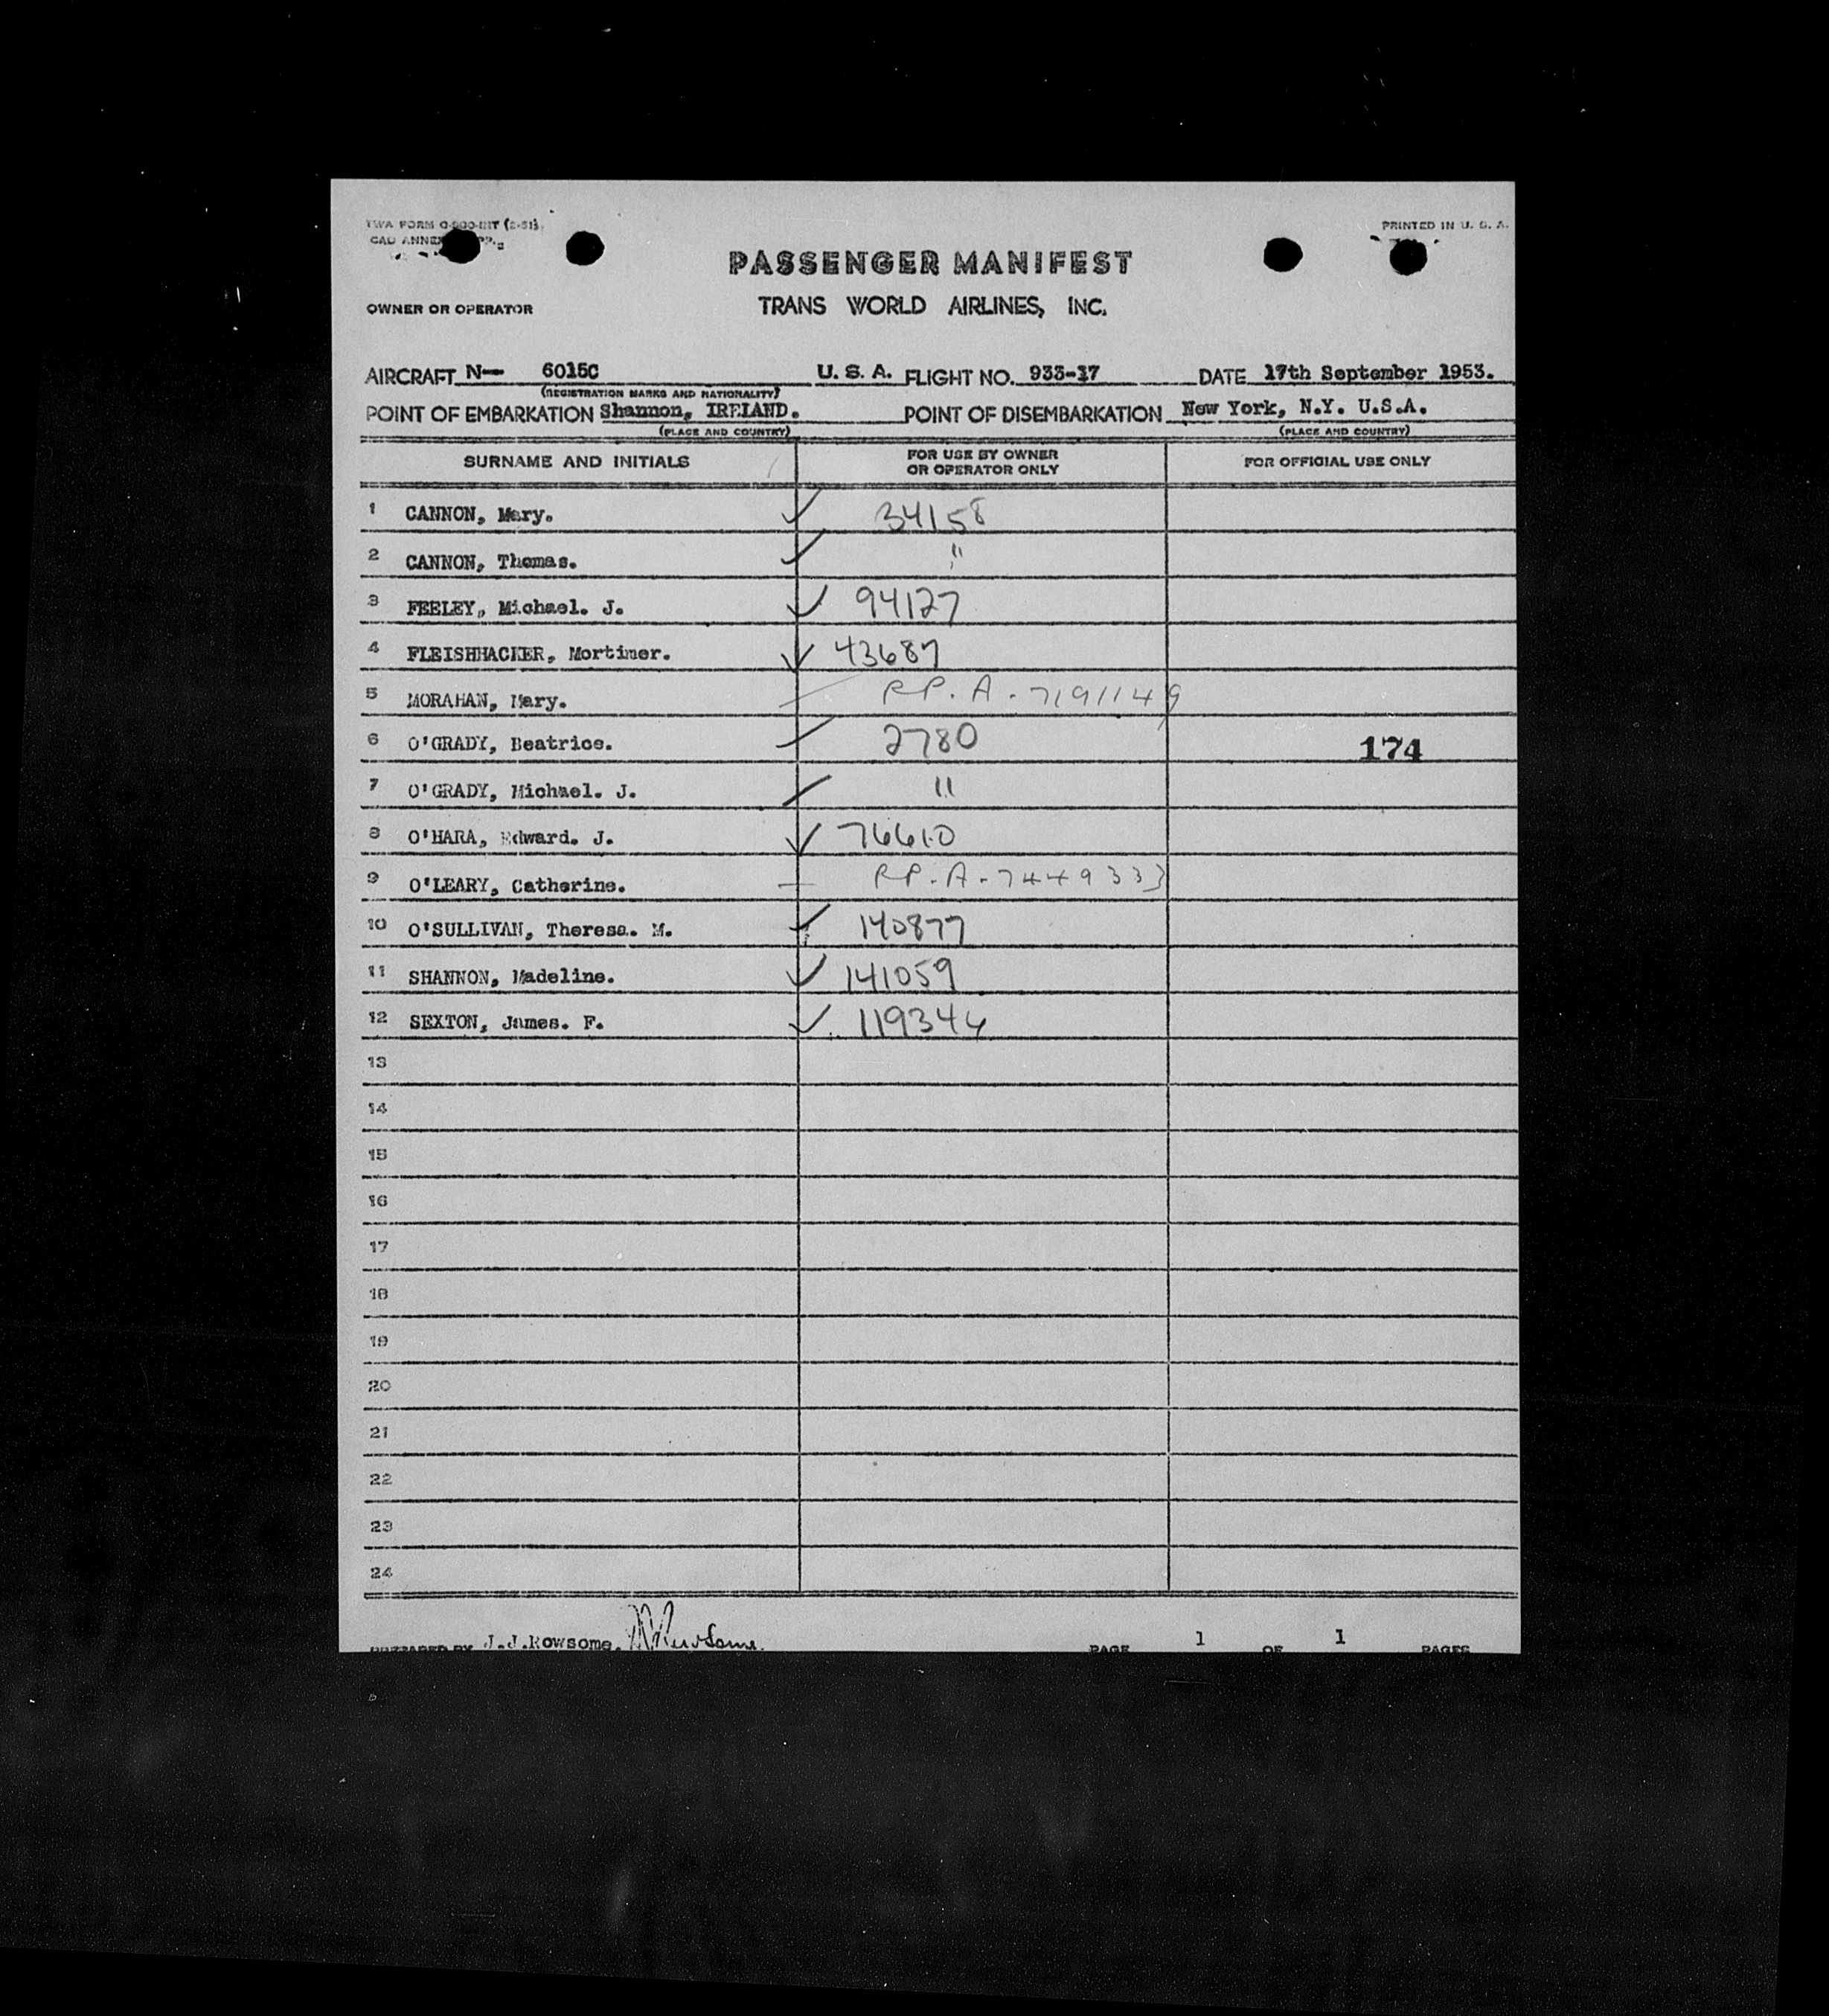 TWA FORM
CAO ANNEX
PRINTED IN U. S. A.
PASSENGER MANIFEST
OWNER OR OPERATOR
TRANS WORLD AIRLINES, INC.
AIRCRAFT N— 6015C U. S. A. FLIGHT NO. 933-17 DATE 17th September 1953.
(REGISTRATION MARKS AND NATIONALITY)
POINT OF EMBARKATION Shannon, IRELAND. POINT OF DISEMBARKATION New York, N.Y. U.S.A.
(PLACE AND COUNTRY) (PLACE AND COUNTRY)
SURNAME AND INITIALS FOR USE BY OWNER OR OPERATOR ONLY FOR OFFICIAL USE ONLY
1 CANNON, Mary. ✓ 34158
2 CANNON, Thomas. ✓ "
3 FEELEY, Michael. J. ✓ 94127
4 FLEISHHACKER, Mortimer. ✓ 43687
5 MORAHAN, Mary. RP. A - 7191149
6 O'GRADY, Beatrice. ✓ 2780 174
7 O'GRADY, Michael. J. ✓ "
8 O'HARA, Edward. J. ✓ 76610
9 O'LEARY, Catherine. RP. A - 7449333
10 O'SULLIVAN, Theresa. M. ✓ 140877
11 SHANNON, Madeline. ✓ 141059
12 SEXTON, James. F. ✓ 119344
13
14
15
16
17
18
19
20
21
22
23
24
PREPARED BY J.J.Rowsome. JJRowsome. PAGE 1 OF 1 PAGES